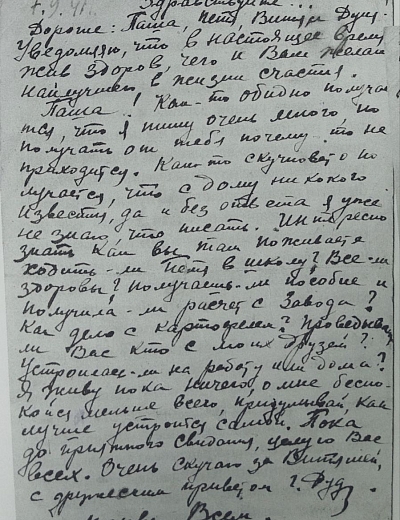 7.9.41.. Здравствуйте...
Дорогие: Паша, Петя, Витя и Дуня.
Уведомляю, что в настоящее время
жив здоров, чего и Вам желаю
наилучшего в жизни счастия.
Паша! Как-то обидно получа
тся, что я пишу очень много, но
получать от тебя почему то не
приходится. Как-то скучновато по
лучается, что с дому ни какого
известия, да и без ответа я уже
не знаю, что писать. Интересно
знать как вы там поживаете
ходить-ли Петя в школу? Все-ли
здоровы? Получаешь-ли пособие и
получила-ли расчет с завода?
Как дело с картофелем? Проведывал
ли Вас кто с моих друзей?
Устроилась-ли на работу или дома?
Я живу пока ничего, о мне беспо-
койся меньше всего, придумывай, как
лучше устроится самой. Пока
до приятного свидания, целую Вас
всех. Очень скучаю за Витяней,
с дружеским приветом г. Дуд
Всем.